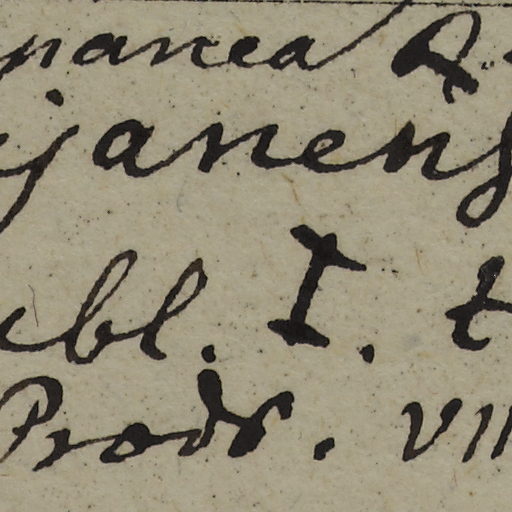 panea R
ijanens
ebl. I. t
Prodr. VII